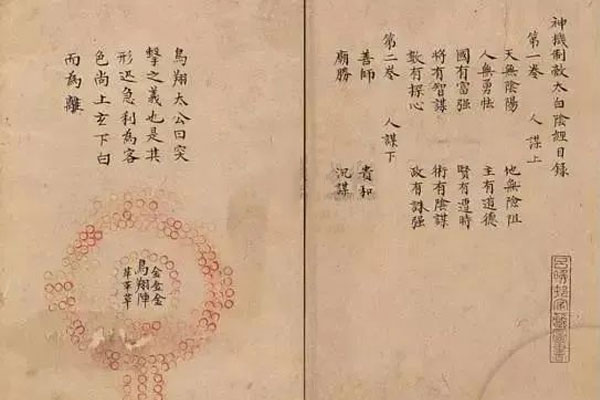 神機制敵太白陰經目錄
第一卷 人謀上
天無陰陽 地無險阻
人無勇怯 主有道德
國有富强 賢有遭時
將有智謀 術有陰謀
數有探心 政有誅强
第二卷 人謀下
善師 貴和
廟勝 沉謀
鳥翔太公曰突
擊之義也是其
形迅急利為客
色尚上玄下白
而為離
金金金
鳥翔陣
革革革